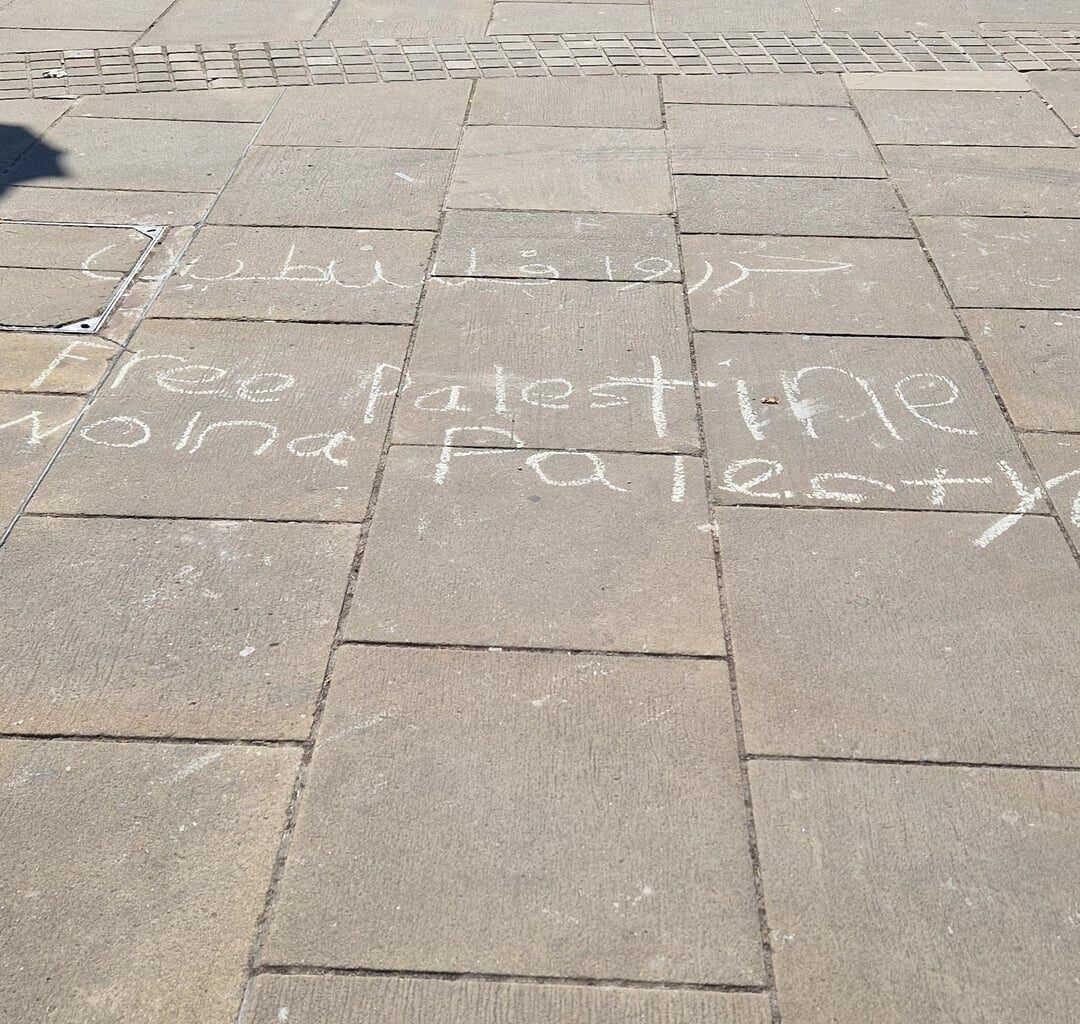 حرروا فلسطين
Free Palestine
Wolna Palestyn